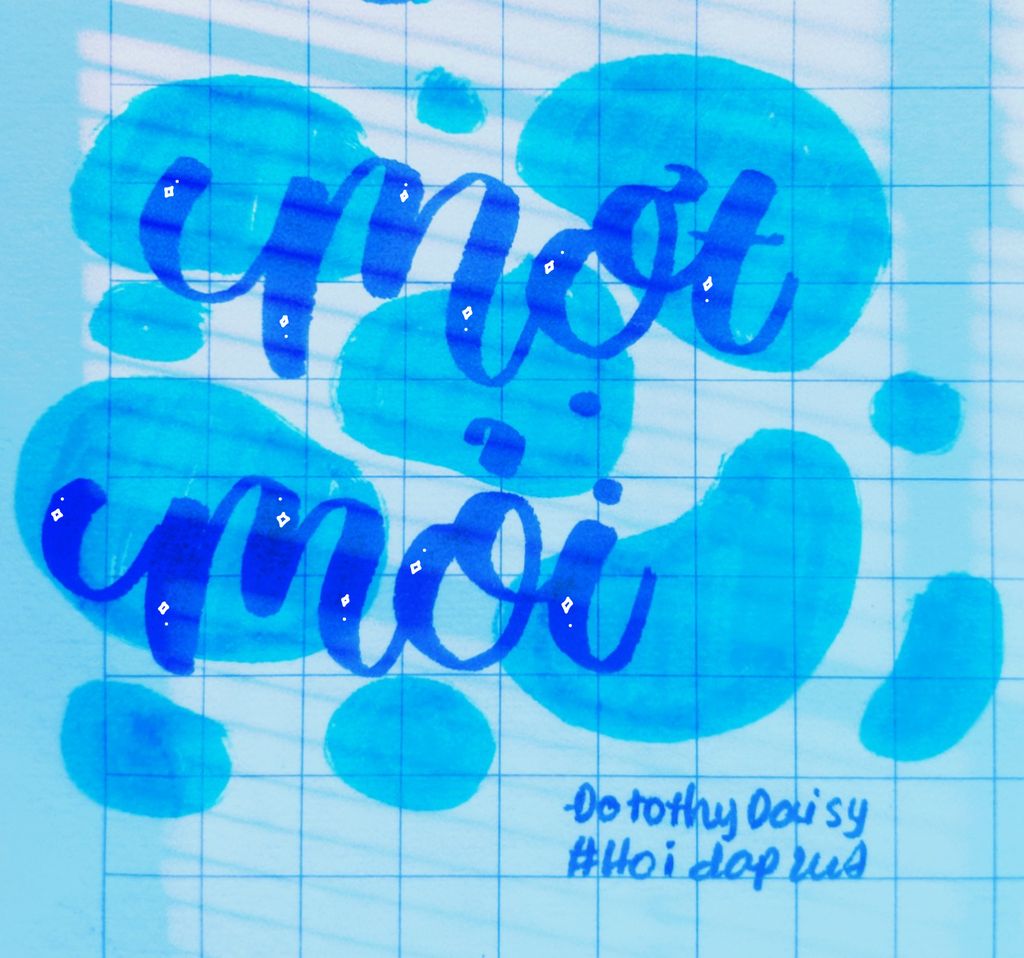 mợt
mỏi
Dorothy Daisy
#Hoi dap